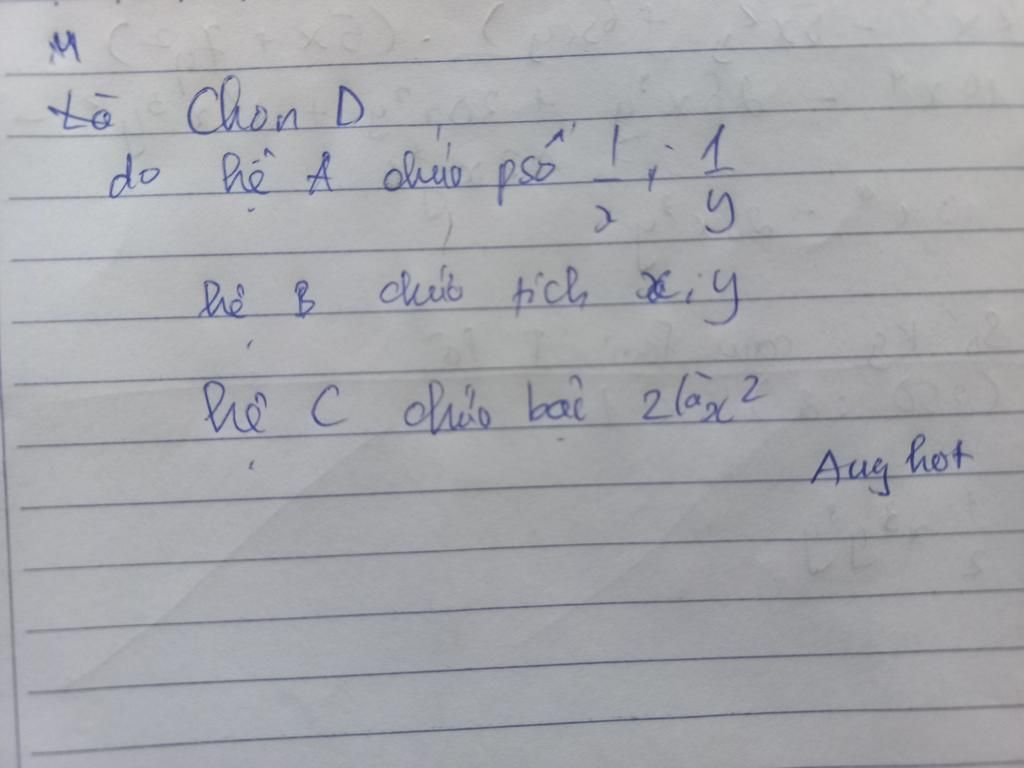 M
Chọn D
do hệ A chứa psố 1/x ; 1/y
hệ B chứa tích x.y
hệ C chứa bậc 2 là x²
Aug hot